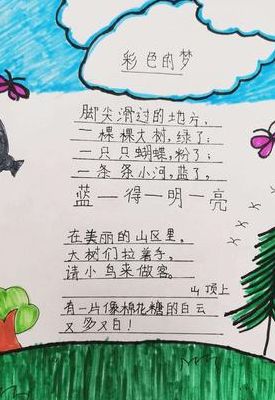 彩色的梦
脚尖滑过的地方，
一棵棵大树，绿了；
一只只蝴蝶，粉了；
一条条小河，蓝了，
蓝－得－明－亮
在美丽的山区里，
大树们拉着手，
请小鸟来做客。
山顶上
有一片像棉花糖的白云
又多又白！